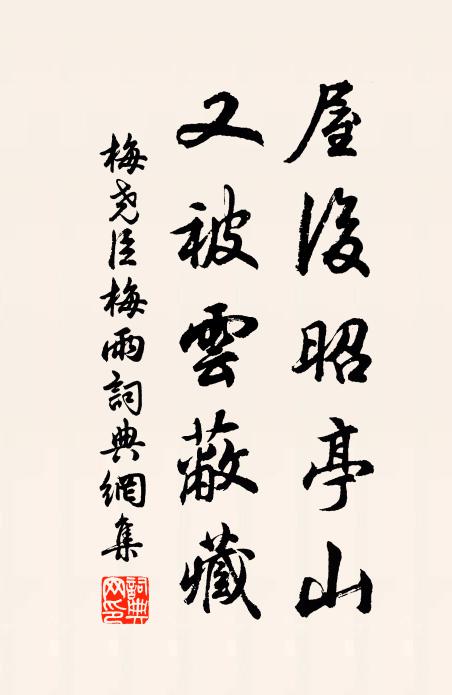 屋後昭亭山
又被雲蔽藏
梅堯臣梅雨詞典網集
詞典網印